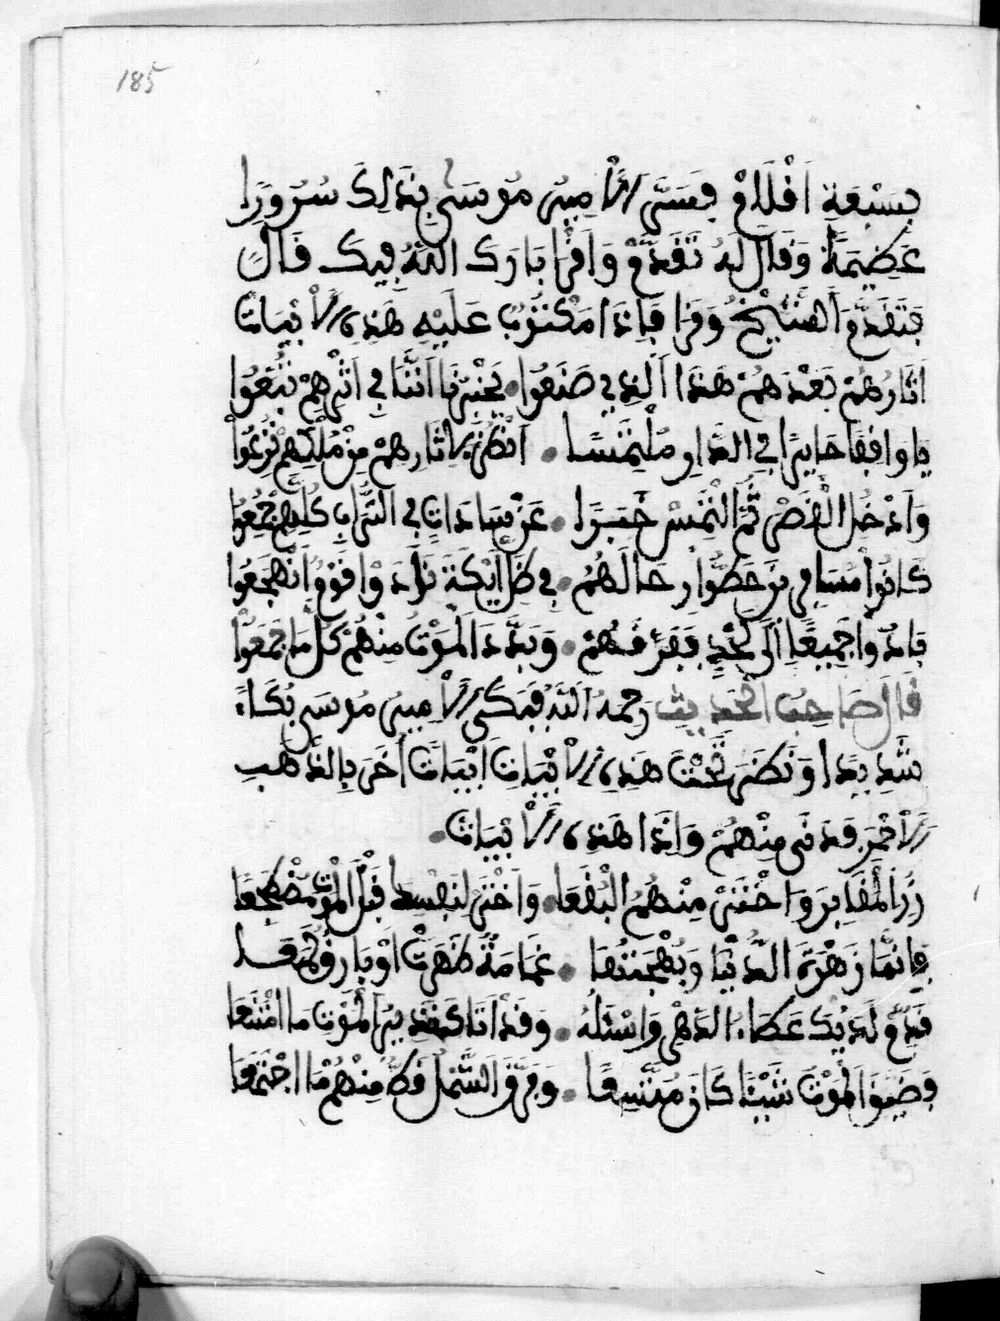 185
بسبعة اقلام فسر الامير موسى بذلك سرورا
عضيمة وقال له تقدم واقرا بارك الله فيك قال
فتقدم الشيخ وقرا فاذا مكتوب عليه هذه الابيات
اثارهم بعدهم هذا الذي صنعوا يخبرنا اننا في اثرهم نتبعوا
يا واقفا حايرا في الدار ملتمسا انظر لاثارهم من ملكهم نزعوا
وادخل القصر ثم التمس خبرا عن سادات في التراب كلهم جمعوا
كانوا مسافرين حطوا رحالهم في ظل ايكة نزلة وافوق انهجعوا
بادوا جميعا الى لحد ففرقهم وبدد الموت منهم كل ما جمعوا
قال صاحب الحديث رحمه الله فبكى الامير موسى بكاء
شديدا ونضر تحت هذه الابيات ابيات اخر بالذهب
الاحمر قد نى منهم واذا هذه الابيات
زر المقابر واختبر منهم البقعا واختر لنفسك قبل الموت مضطجعا
فانما زهرة الدنيا وبهجتها غمامة ظهرت او بارق لمعا
قدم لديك عطاء الدهر واسئله وقد اتاك تقدير الموت ما امتنعا
وضيق الموت شيئا كان متسعا وفرق الشمل فك منهم ما اجتمعا